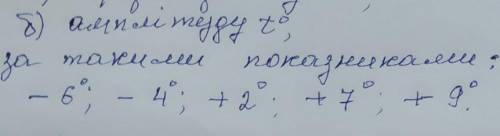 б) амплітуду t°,
за такими показниками:
- 6°; - 4°; + 2°; + 7°; + 9°.